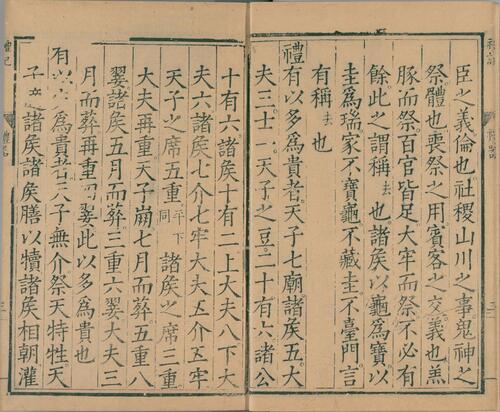 臣之義倫也社稷山川之事鬼神之
祭體也喪祭之用賓客之交義也羔
豚而祭百官皆足大牢而祭不必有
餘此之謂稱去也諸侯以龜爲寶以
圭爲瑞家不寶龜不藏圭不臺門言
有稱去也
禮有以多爲貴者天子七廟諸侯五大
夫三士一天子之豆二十有六諸公
十有六諸侯十有二上大夫八下大
夫六諸侯七介七牢大夫五介五牢
天子之席五重平下同諸侯之席三重
大夫再重天子崩七月而葬五重八
翣諸侯五月而葬三重六翣大夫三
月而葬再重四翣此以多爲貴也
有以爲貴者天子無介祭天特牲天
子諸侯諸侯膳以犢諸侯相朝灌
禮記
禮器